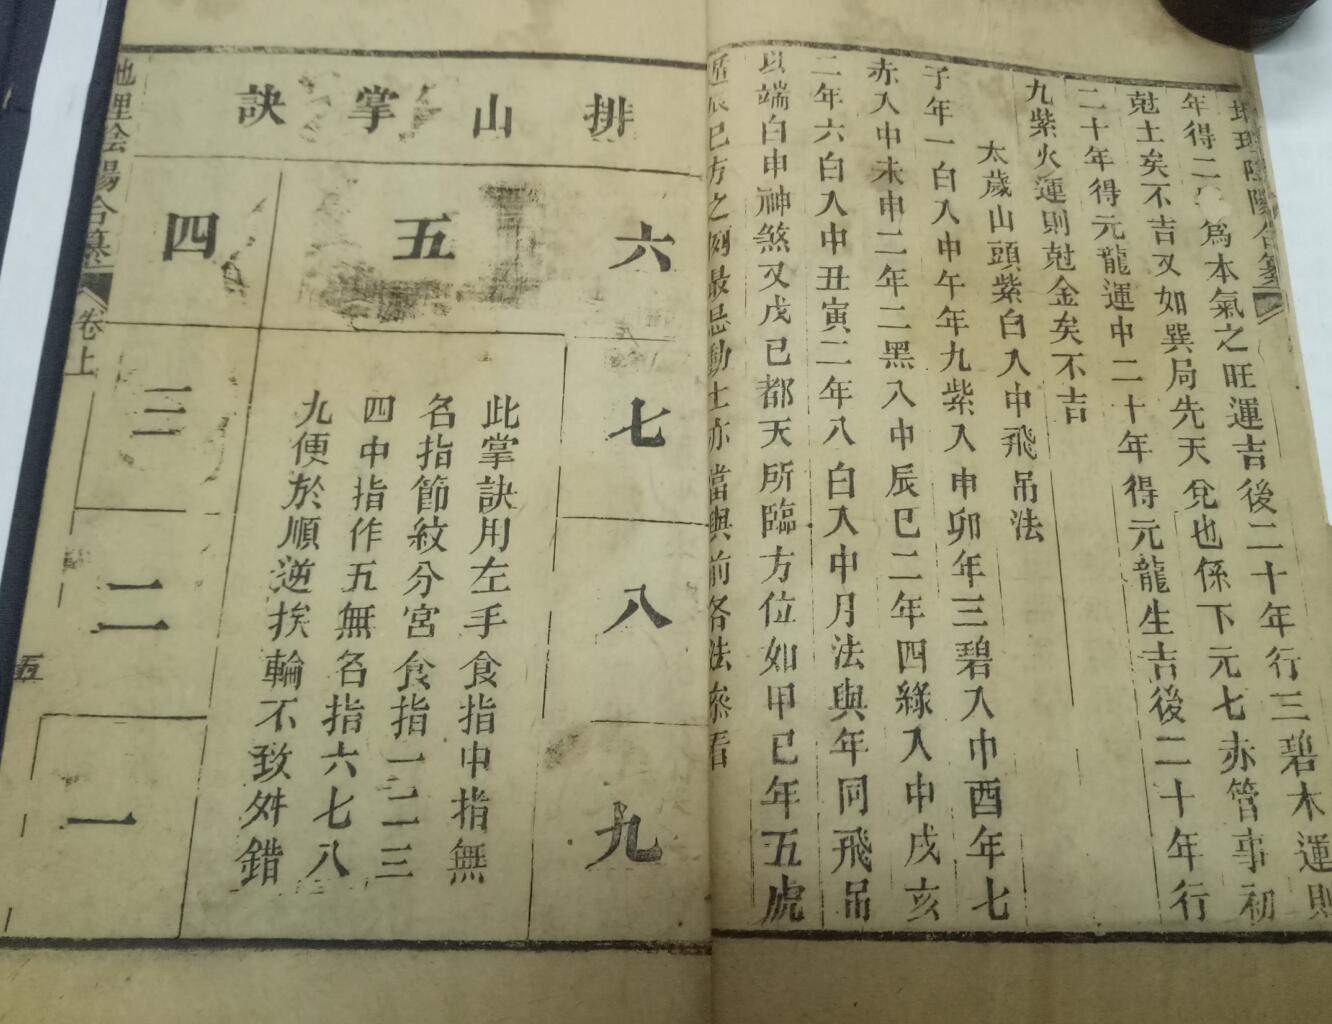 年得二爲本氣之旺運吉後二十年行三碧木運則
尅土矣不吉又如巽局先天兌也係下元七赤管事初
二十年得元龍運中二十年得元龍生吉後二十年行
九紫火運則尅金矣不吉
太歲山頭紫白入中飛吊法
子年一白入中午年九紫入中卯年三碧入中酉年七
赤入中未申二年二黑入中辰巳二年四綠入中戌亥
二年六白入中丑寅二年八白入中月法與年同飛吊
以端白中神煞又戊己都天所臨方位如甲己年五虎
辰巳方之最忌動土亦當與前各法叅看
排山掌訣
六
七
八
九
五
四
三
二
一
此掌訣用左手食指中指無
名指節紋分宮食指一二三
四中指作五無名指六七八
九便於順逆挨輪不致舛錯
地理陰陽合纂
卷上
五